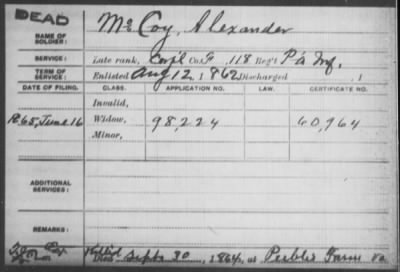 DEAD
NAME OF SOLDIER: McCoy, Alexander
SERVICE: Late rank, Corp'l Co. F, 118 Reg't Pa Inf.
TERM OF SERVICE: Enlisted Aug 12, 1862 Discharged , 1
DATE OF FILING. CLASS. APPLICATION NO. LAW. CERTIFICATE NO.
Invalid,
1865, June 16 Widow, 98,224 60,964
Minor,
ADDITIONAL SERVICES:
REMARKS:
Killed
Died Sept 30, 1864, at Peebles Farm Va